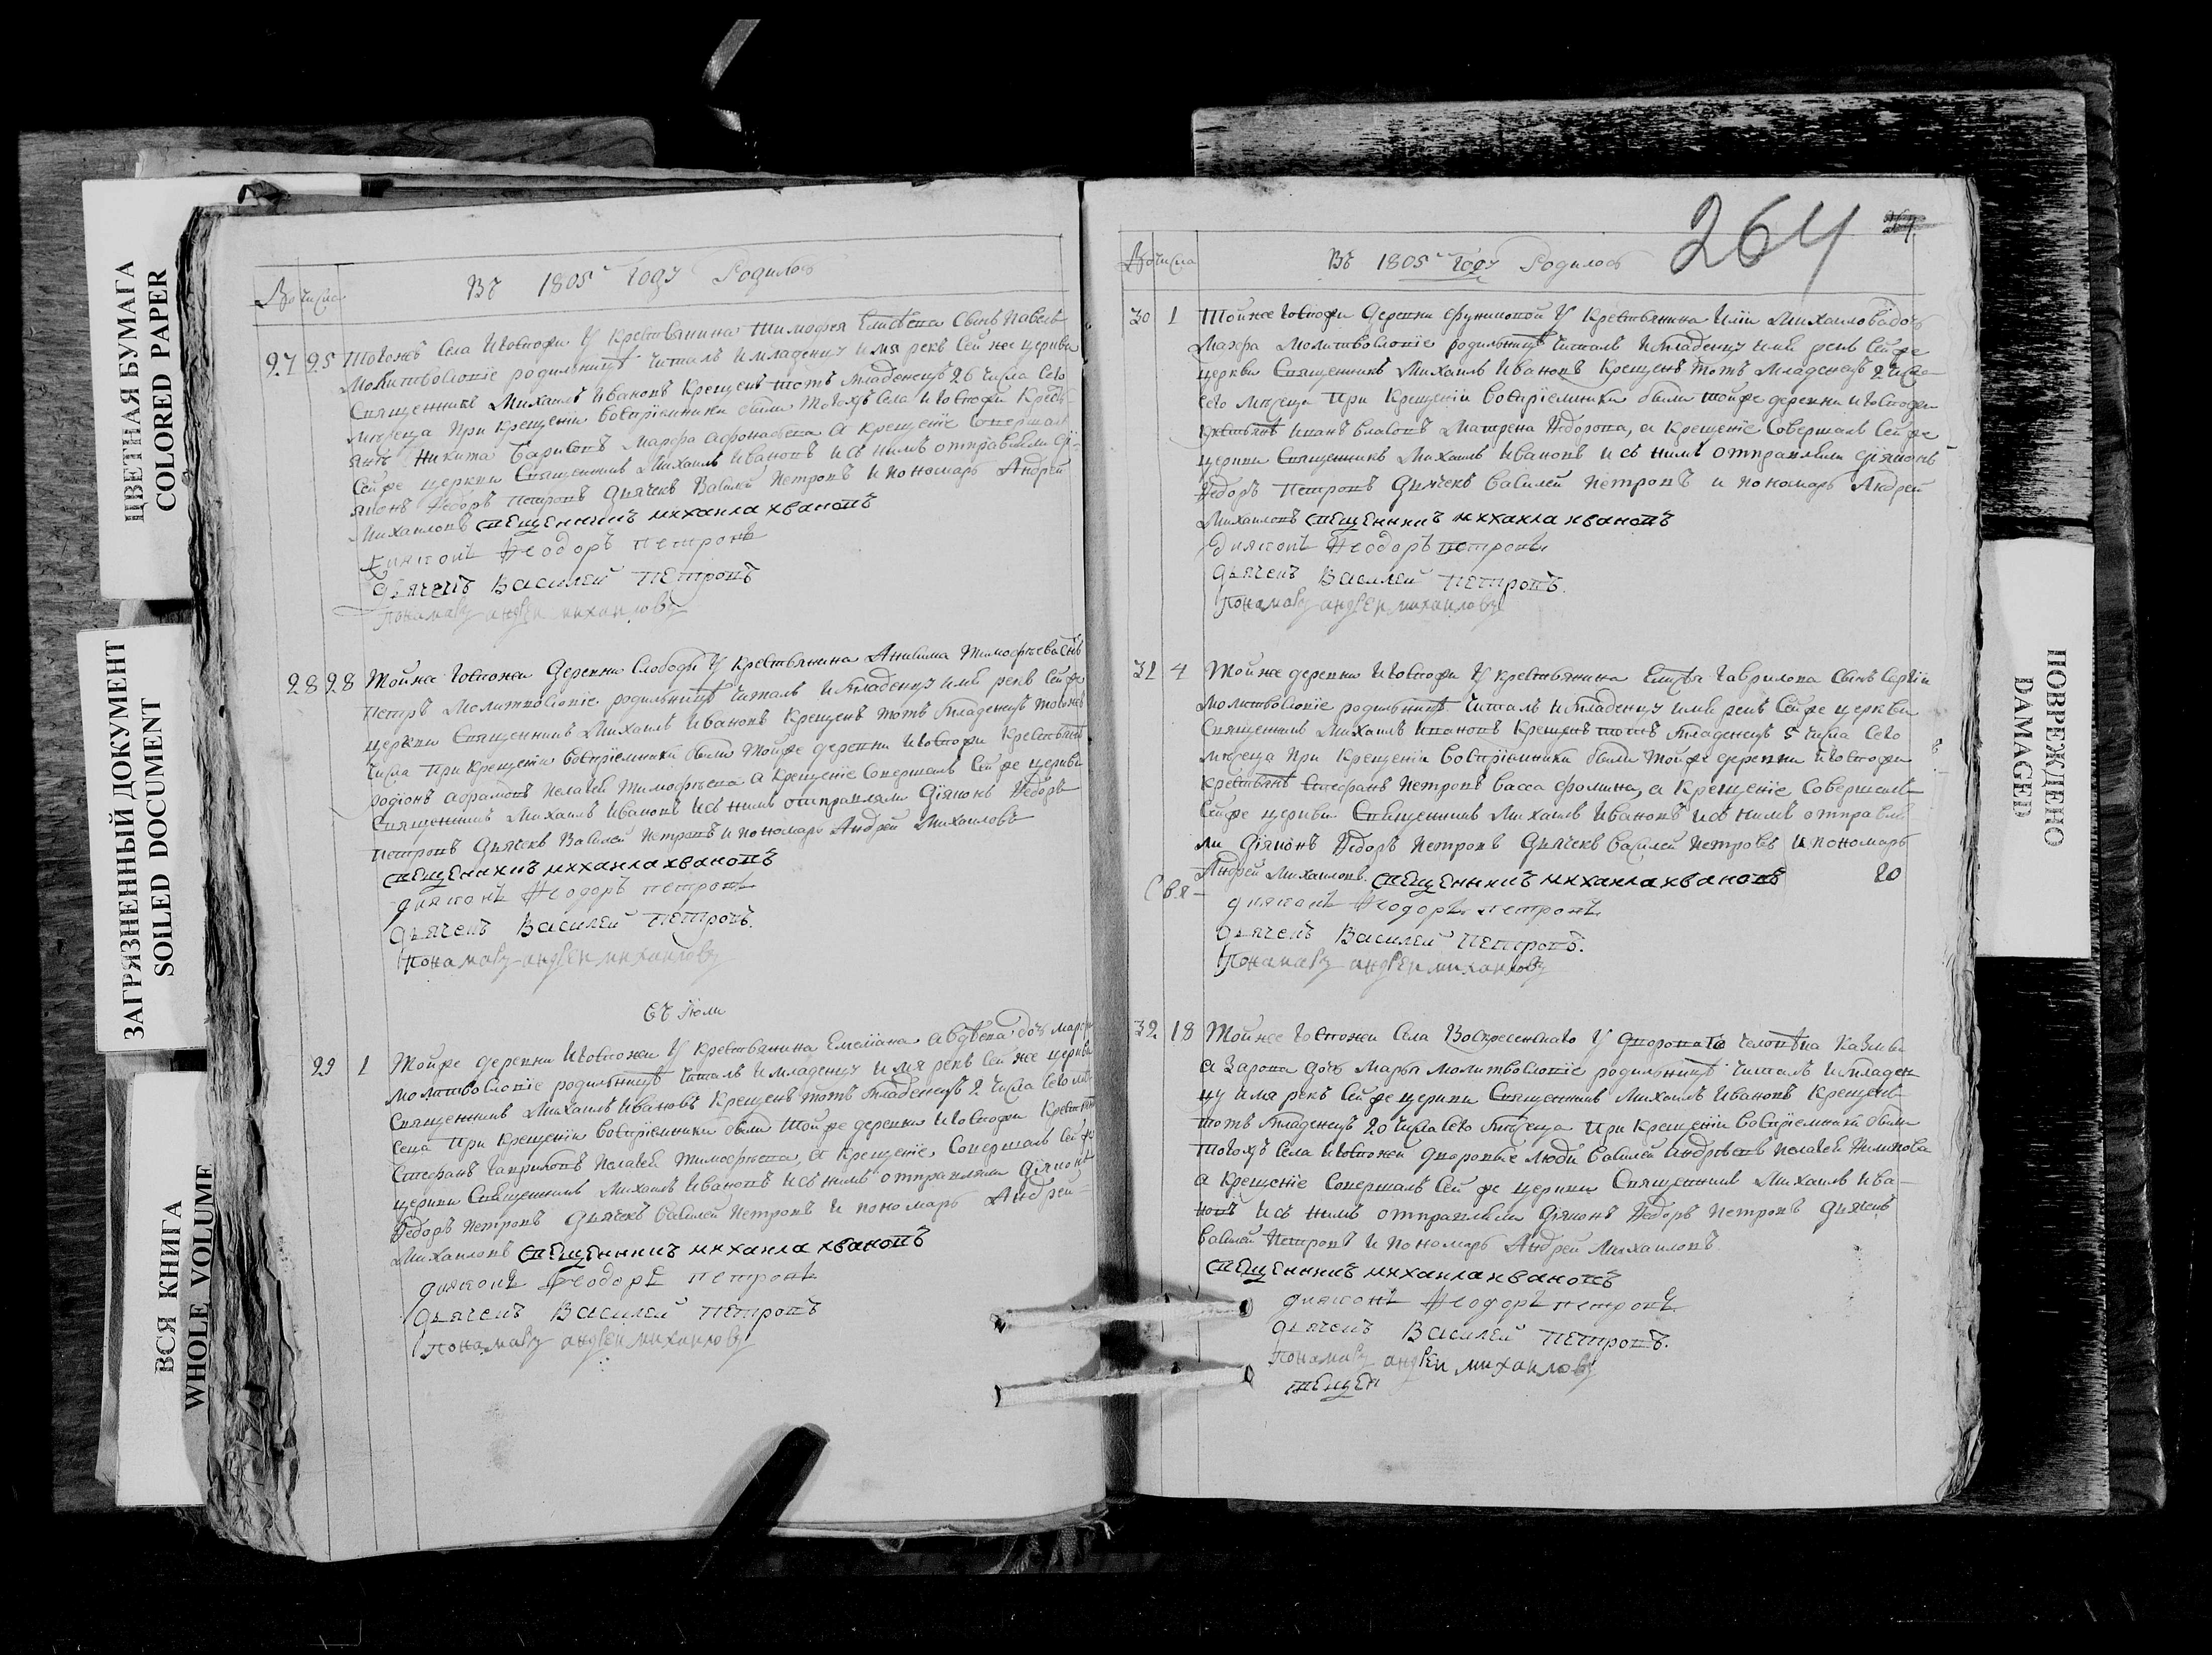 ЦВЕТНАЯ БУМАГА
COLORED PAPER
ЗАГРЯЗНЕННЫЙ ДОКУМЕНТ
SOILED DOCUMENT
ВСЯ КНИГА
WHOLE VOLUME
№ числа
Въ 1805 году Родилось
27 25 Тогожъ села и Госпожи У крестьянина Тимофея Елисѣева сынъ Павелъ
Молитвословіе родильницѣ читалъ и младенцу имя рекъ Сей же церкви
Священникъ Михаилъ Ивановъ Крещенъ тотъ младенецъ 26 числа сего
мѣсеца При крещеніи воспріемники были тогожъ села и Госпожи Кресть-
янѣ Никита Марфа Афонасьева а крещеніе совершалъ
Сей же церкви Священникъ Михаилъ Ивановъ и съ нимъ отправляли ді-
яконъ Ѳедоръ Петровъ Дьячекъ Василей Петровъ и пономарь Андрей
Михаиловъ свещенникъ михаила ивановъ
дияконъ Ѳеодоръ петровъ
дьячекъ Василей Петровъ
понамарь андреи михаиловъ
28 28 Тойже Госпожи Деревни Слободы У крестьянина Анисима Тимофѣева сынъ
Петръ Молитвословіе родильницѣ читалъ и младенцу имя рекъ Сей же
церкви Священникъ Михаилъ Ивановъ Крещенъ тотъ младенецъ тогожъ
числа При крещеніи воспріемники были Тойже деревни и Госпожи крестьянѣ
родіонъ Абрамовъ Пелагея Тимофѣева а крещеніе совершалъ Сей же церкви
Священникъ Михаилъ Ивановъ и съ нимъ отправляли діяконъ Ѳедоръ
Петровъ Дьячекъ Василей Петровъ и пономарь Андрей Михаиловъ
свещенникъ михаила ивановъ
дияконъ Ѳеодоръ петровъ
дьячекъ Василей Петровъ.
понамарь андреи михаиловъ
Въ Іюли
29 1 Тойже деревни и Госпожи У крестьянина Емеліана Авдѣева дочь
молитвословіе родильницѣ читалъ и младенцу имя рекъ Сей же церкви
Священникъ Михаилъ Ивановъ Крещенъ тотъ младенецъ 2 числа сего мѣ-
сеца При крещеніи воспріемники были Тойже деревни и Госпожи Крестьянѣ
Стефанъ Гавриловъ Пелагея Тимофѣева, а крещеніе совершалъ Сей же
церкви Священникъ Михаилъ Ивановъ и съ нимъ отправляли діяконъ
Ѳедоръ Петровъ Дьячекъ Василей Петровъ и пономарь Андрей
Михаиловъ свещенникъ михаила ивановъ
дияконъ Ѳеодоръ петровъ
дьячекъ Василей Петровъ
понамарь андреи михаиловъ
264
№ числа
Въ 1805 году Родилось
30 1 Тойже Госпожи Деревни У крестьянина Иліи Михаилова дочь
Мавра Молитвословіе родильницѣ читалъ и младенцу имя рекъ Сей же
церкви Священникъ Михаилъ Ивановъ Крещенъ тотъ младенецъ 2 числа
сего мѣсеца При Крещеніи воспріемники были тойже деревни и Госпожи
крестьянѣ Иванъ Власовъ Матрена Ѳедорова, а крещеніе совершалъ Сей же
церкви Священникъ Михаилъ Ивановъ и съ нимъ отправляли діяконъ
Ѳедоръ Петровъ Дьячекъ Василей Петровъ и пономарь Андрей
Михаиловъ свещенникъ михаила ивановъ
дияконъ Ѳеодоръ петровъ
дьячекъ Василей Петровъ.
понамарь андреи михаиловъ
31 4 Тойже деревни и Госпожи У крестьянина Гаврилова сынъ Сергіи
Молитвословіе родильницѣ читалъ и младенцу имя рекъ Сей же церкви
Священникъ Михаилъ Ивановъ Крещенъ тотъ младенецъ 5 числа сего
мѣсеца При Крещеніи воспріемники были тойже деревни и Госпожи
крестьянѣ Стефанъ Петровъ Васса Фомина, а крещеніе совершалъ
Сей же церкви Священникъ Михаилъ Ивановъ и съ нимъ отправля
ли діяконъ Ѳедоръ Петровъ Дьячекъ Василей Петровъ и пономарь
Андрей Михаиловъ. свещенникъ михаила ивановъ 20
дияконъ Ѳеодоръ петровъ
дьячекъ Василей Петровъ.
понамарь андреи михаиловъ
32 18 Тойже Госпожи Села Воскресенскаго У двороваго человѣка Казмы
Азарова дочь Марья молитвословіе родильницѣ читалъ и младен
цу имя рекъ Сей же церкви Священникъ Михаилъ Ивановъ Крещенъ
тотъ младенецъ 20 числа сего мѣсеца При крещеніи воспріемники были
тогожъ села и Госпожи дворовые люди Василей Андрѣевъ Пелагея
а крещеніе совершалъ Сей же церкви Священникъ Михаилъ Ива-
новъ и съ нимъ отправляли діяконъ Ѳедоръ Петровъ дьячекъ
Василей Петровъ и пономарь Андрей Михаиловъ
свещенникъ михаила ивановъ
дияконъ Ѳеодоръ петровъ
дьячекъ Василей Петровъ.
понамарь андреи михаиловъ
свещен
ПОВРЕЖДЕНО
DAMAGED